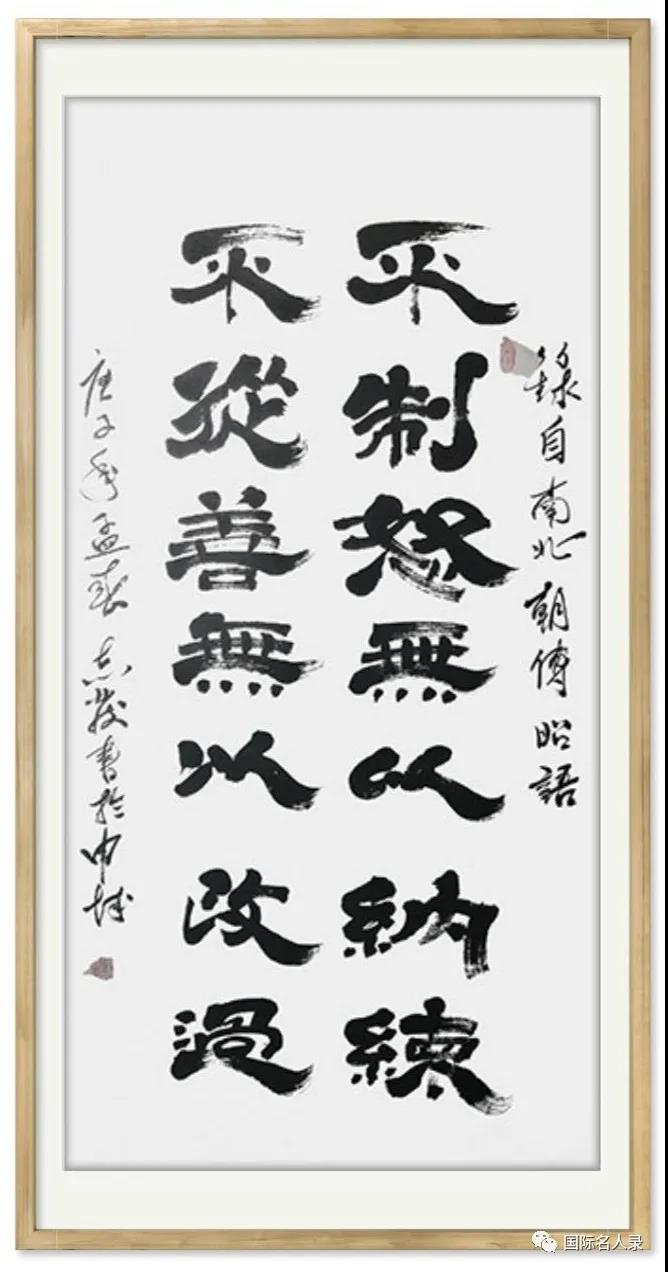 錄自南北朝傅昭語
不制怒無以納練
不從善無以改過
庚子年孟春志發書於申城
国际名人录